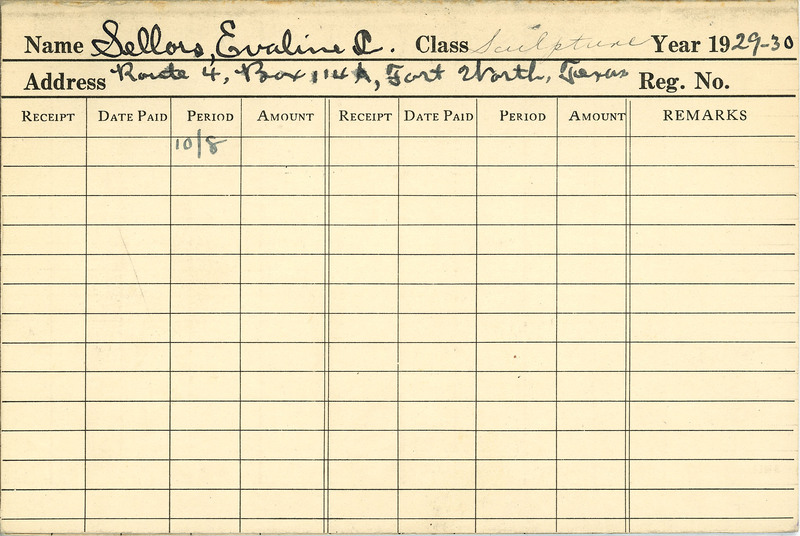 Name Sellors, Evaline C. Class Sculpture Year 1929-30
Address Route 4, Box 114A, Fort Worth, Texas Reg. No.
RECEIPT DATE PAID PERIOD AMOUNT RECEIPT DATE PAID PERIOD AMOUNT REMARKS
10/8